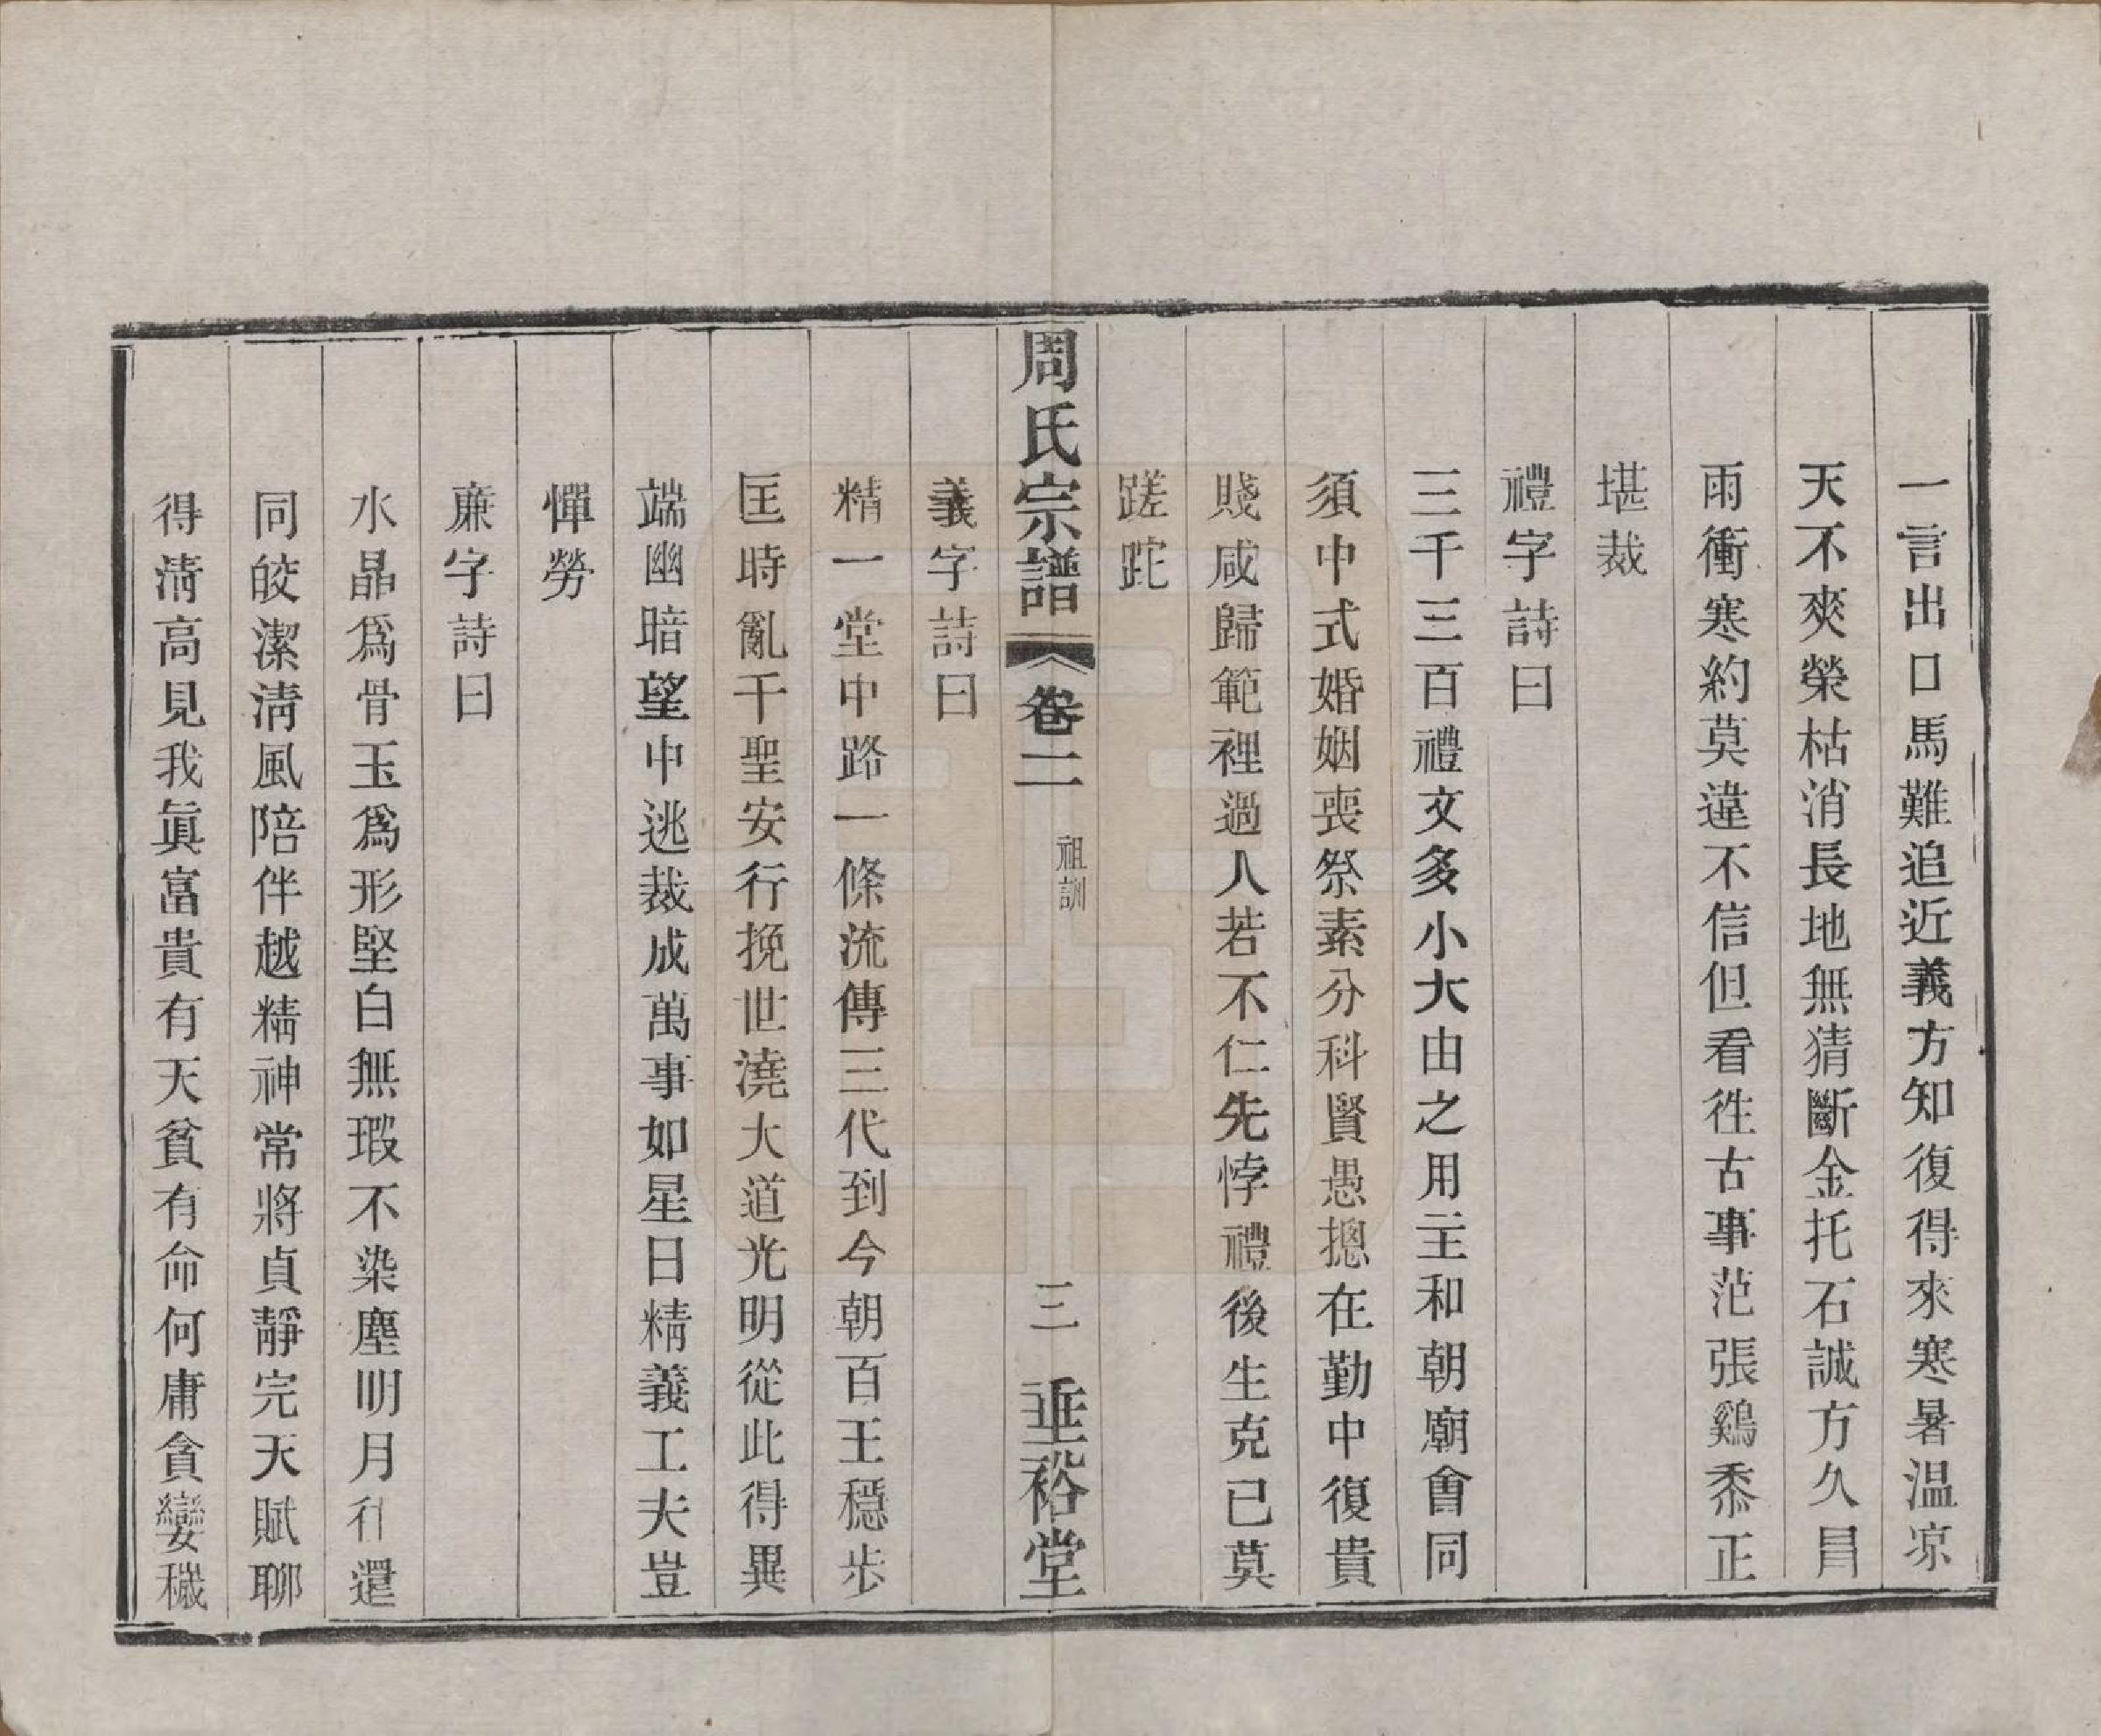 一言出口馬難追近義方知復得來寒暑温凉
天不爽榮枯消長地無猜斷金托石誠方久冒
雨衝寒約莫違不信但看徃古事范張鷄黍正
堪裁
禮字詩曰
三千三百禮文多小大由之用主和朝廟會同
須中式婚姻喪祭素分科賢愚摠在勤中復貴
賤咸歸範裡過人若不仁先悖禮後生克已莫
蹉跎
周氏宗譜 卷二 祖訓 三 垂裕堂
義字詩曰
精一堂中路一條流傳三代到今朝百王穩步
匡時亂千聖安行挽世澆大道光明從此得異
端幽暗望中逃裁成萬事如星日精義工夫豈
憚勞
廉字詩曰
水晶爲骨玉爲形堅白無瑕不染塵明月行還
同皎潔清風陪伴越精神常將貞靜完天賦聊
得淸高見我眞富貴有天貧有命何庸貪孌穢